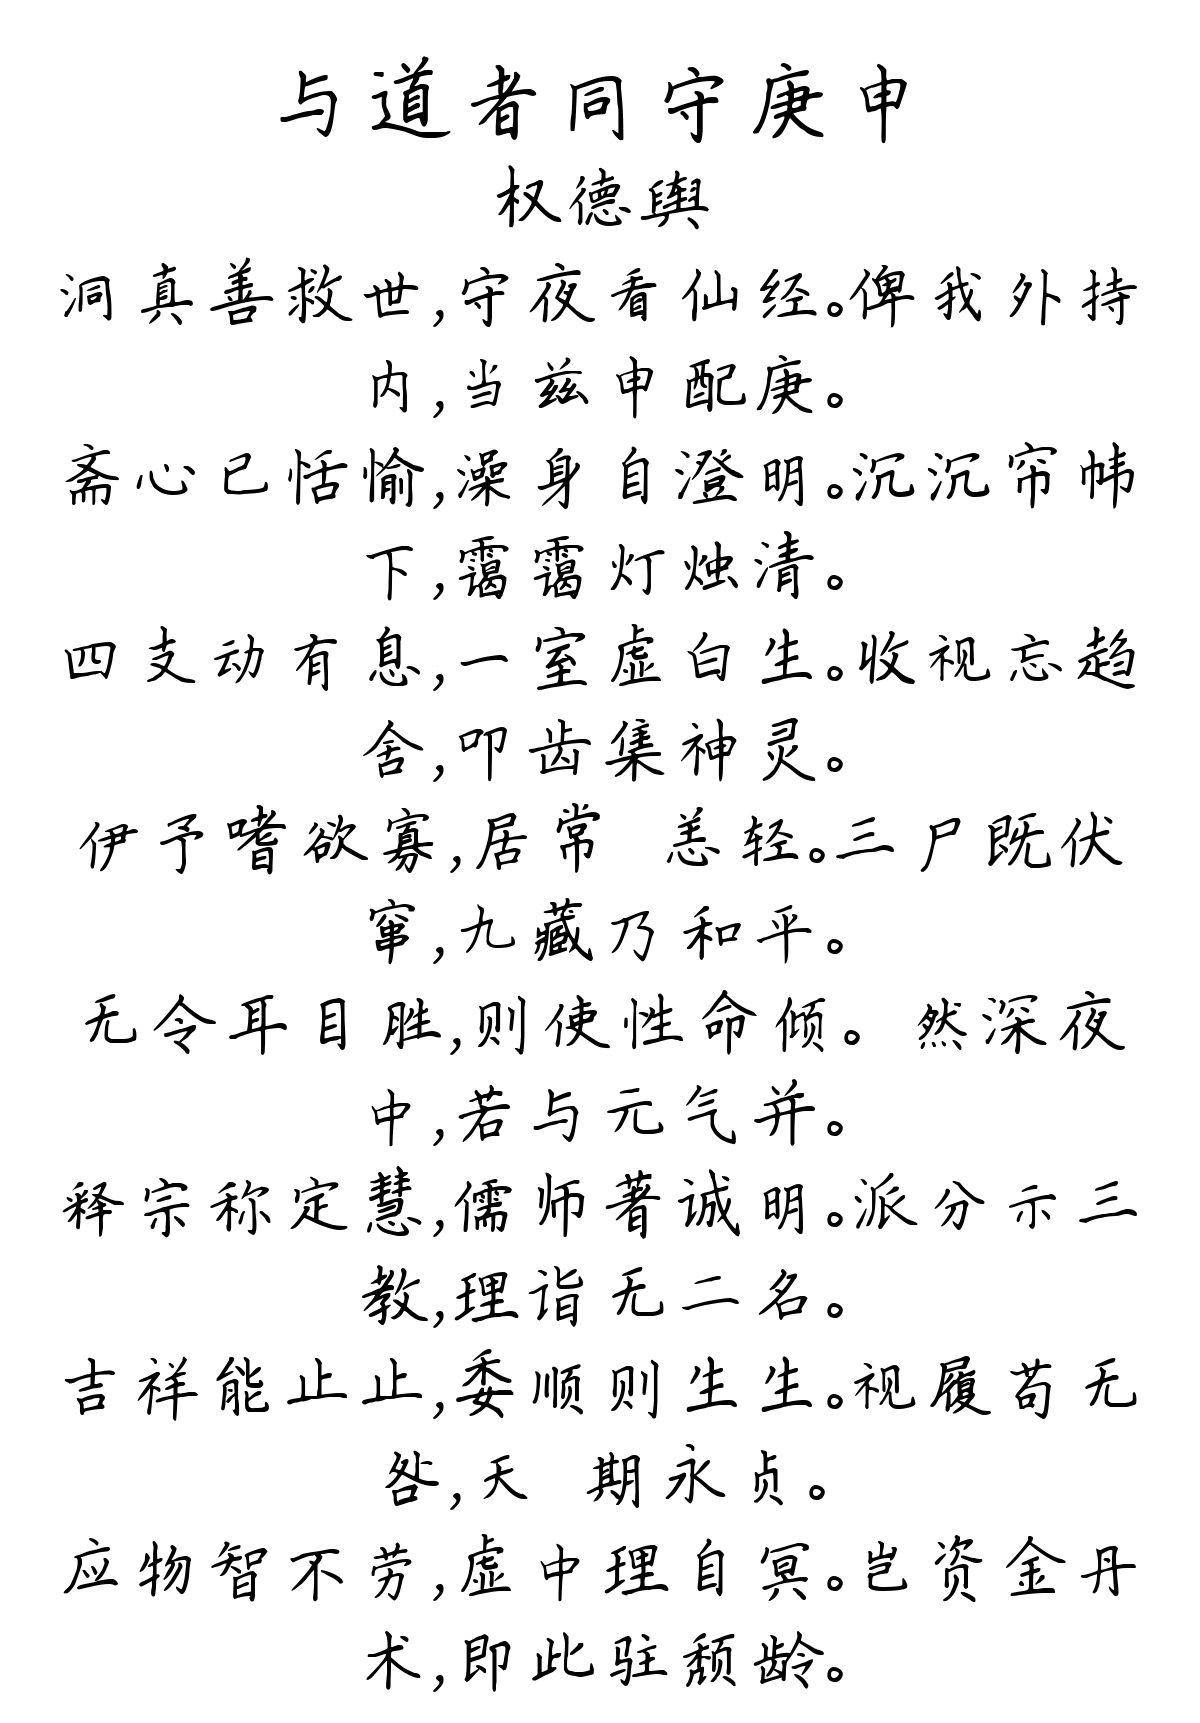 与道者同守庚申
权德舆
洞真善救世,守夜看仙经。俾我外持
内,当兹申配庚。
斋心已恬愉,澡身自澄明。沉沉帘帏
下,霭霭灯烛清。
四支动有息,一室虚白生。收视忘趋
舍,叩齿集神灵。
伊予嗜欲寡,居常 恙轻。三尸既伏
窜,九藏乃和平。
无令耳目胜,则使性命倾。 然深夜
中,若与元气并。
释宗称定慧,儒师著诚明。派分示三
教,理诣无二名。
吉祥能止止,委顺则生生。视履苟无
咎,天 期永贞。
应物智不劳,虚中理自冥。岂资金丹
术,即此驻颓龄。